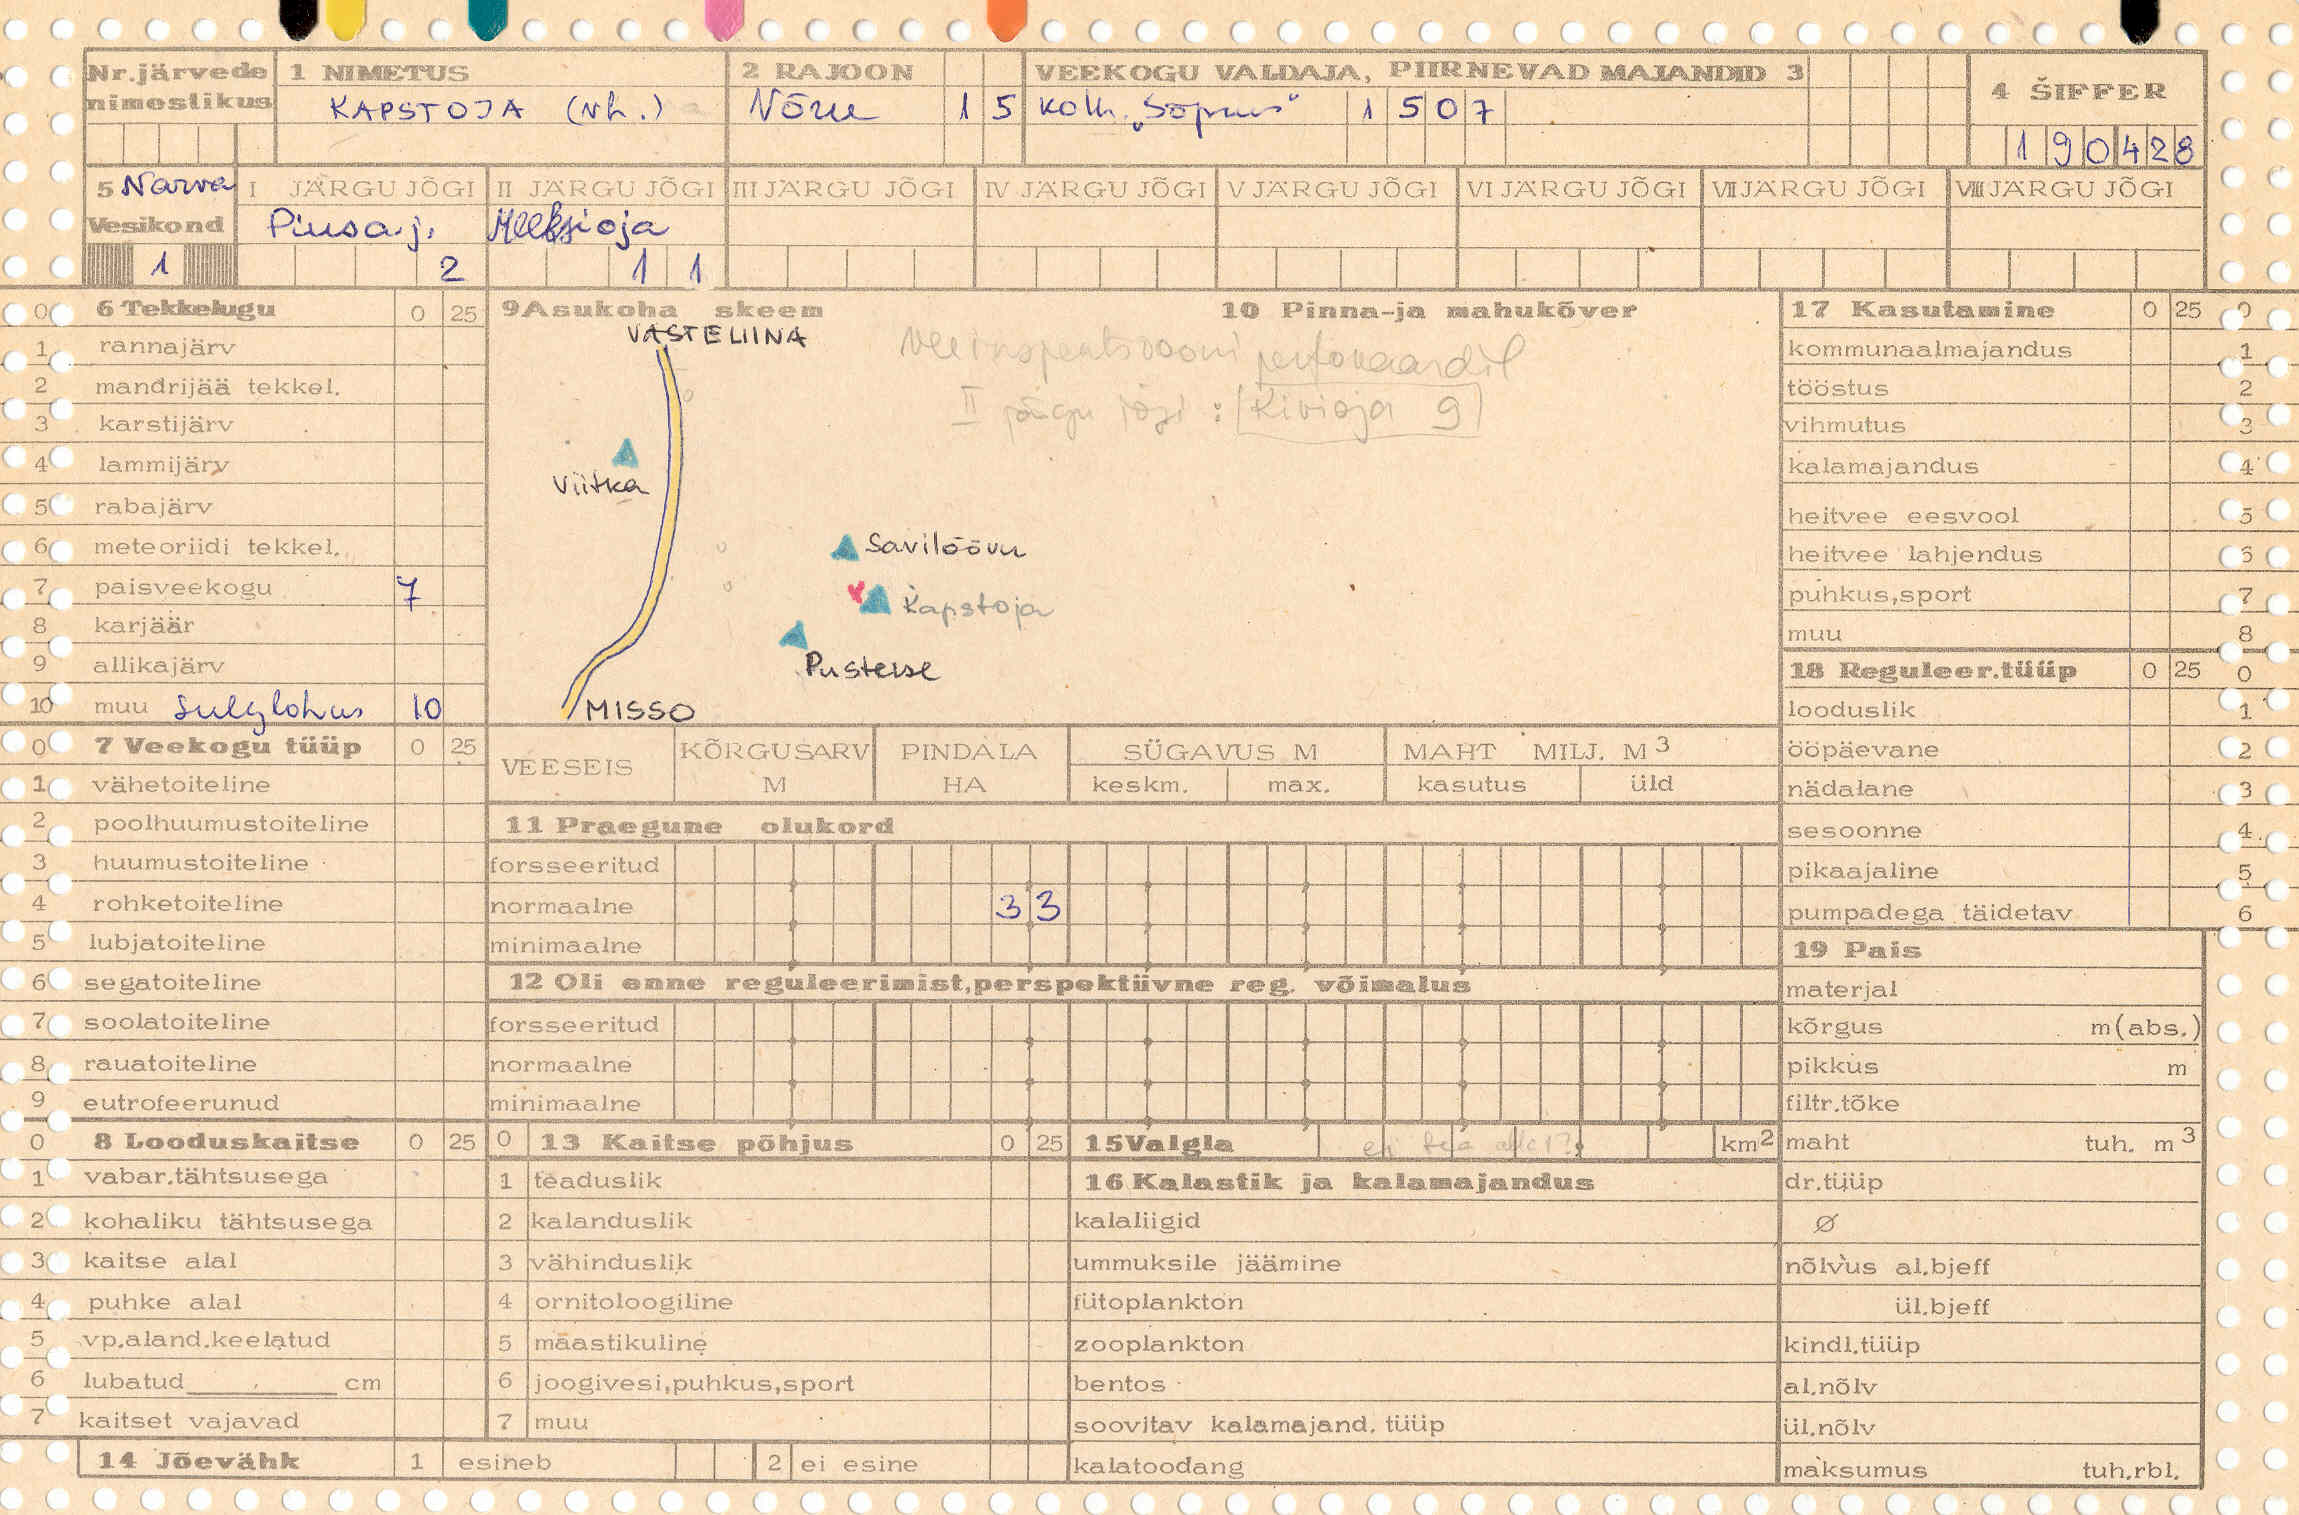 Nr.järvede nimestikus
1 NIMETUS
KAPSTOJA (vh.)
2 RAJOON
Võru 1 5
VEEKOGU VALDAJA, PIIRNEVAD MAJANDID 3
Kolh. „Sõprus“ 1 5 0 7
4 ŠIFFER
1 9 0 4 2 8
5 Narva Vesikond
1
I JÄRGU JÕGI
Piusa j.
2
II JÄRGU JÕGI
Meeksi oja
1 1
III JÄRGU JÕGI
IV JÄRGU JÕGI
V JÄRGU JÕGI
VI JÄRGU JÕGI
VII JÄRGU JÕGI
VIII JÄRGU JÕGI
0 6 Tekkelugu 0 25
1 rannajärv
2 mandrijää tekkel.
3 karstijärv
4 lammijärv
5 rabajärv
6 meteoriidi tekkel.
7 paisveekogu 7
8 karjäär
9 allikajärv
10 muu sulglohus 10
0 7 Veekogu tüüp 0 25
1 vähetoiteline
2 poolhuumustoiteline
3 huumustoiteline
4 rohketoiteline
5 lubjatoiteline
6 segatoiteline
7 soolatoiteline
8 rauatoiteline
9 eutrofeerunud
0 8 Looduskaitse 0 25
1 vabar.tähtsusega
2 kohaliku tähtsusega
3 kaitse alal
4 puhke alal
5 vp.aland.keelatud
6 lubatud cm
7 kaitset vajavad
14 Jõevähk 1 esineb 2 ei esine
9 Asukoha skeem
VASTELIINA
Viitka
Savilöövu
Kapstoja
Pusterse
MISSO
10 Pinna-ja mahukõver
Veeinspektsiooni perfokaardil
II järgu jõgi : Kivioja 9
VEESEIS
KÕRGUSARV M
PINDALA HA
SÜGAVUS M
keskm. max.
MAHT MILJ. M3
kasutus üld
11 Praegune olukord
forsseeritud
normaalne 3 3
minimaalne
12 Oli enne reguleerimist,perspektiivne reg. võimalus
forsseeritud
normaalne
minimaalne
0 13 Kaitse põhjus 0 25
1 teaduslik
2 kalanduslik
3 vähinduslik
4 ornitoloogiline
5 maastikuline
6 joogivesi,puhkus,sport
7 muu
15 Valgla km2
16 Kalastik ja kalamajandus
kalaliigid
ummuksile jäämine
fütoplankton
zooplankton
bentos
soovitav kalamajand. tüüp
kalatoodang
17 Kasutamine 0 25 0
kommunaalmajandus 1
tööstus 2
vihmutus 3
kalamajandus 4
heitvee eesvool 5
heitvee lahjendus 6
puhkus,sport 7
muu 8
18 Reguleer.tüüp 0 25 0
looduslik 1
ööpäevane 2
nädalane 3
sesoonne 4
pikaajaline 5
pumpadega täidetav 6
19 Pais
materjal
kõrgus m(abs.)
pikkus m
filtr.tõke
maht tuh. m3
dr.tüüp
Ø
nõlvus al.bjeff
ül.bjeff
kindl.tüüp
al.nõlv
ül.nõlv
maksumus tuh.rbl.